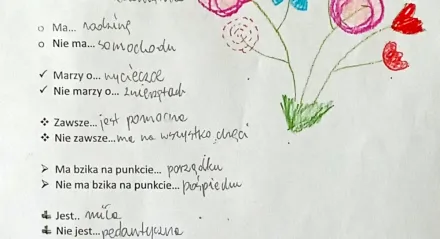 Ma... rodzinę
Nie ma... samochodu
Marzy o... wycieczce
Nie marzy o... zwierzętach
Zawsze... jest pomocna
Nie zawsze... ma na wszystko chęci
Ma bzika na punkcie... porządku
Nie ma bzika na punkcie... pośpiechu
Jest.. miła
Nie jest... pedantyczna